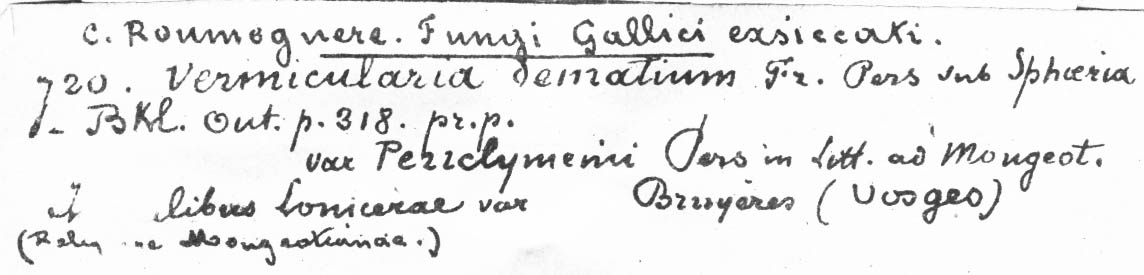 C. Roumeguere. Fungi Gallici exsiccati.
720. Vermicularia Dematium Fr. Pers sub Sphæria
- BKl. Out. p. 318. pr.p.
var Periclymeni Pers in Litt. ad Mougeot.
libers Lonicerae var Bruyères (Vosges)
(Reliq Mougeotianae.)